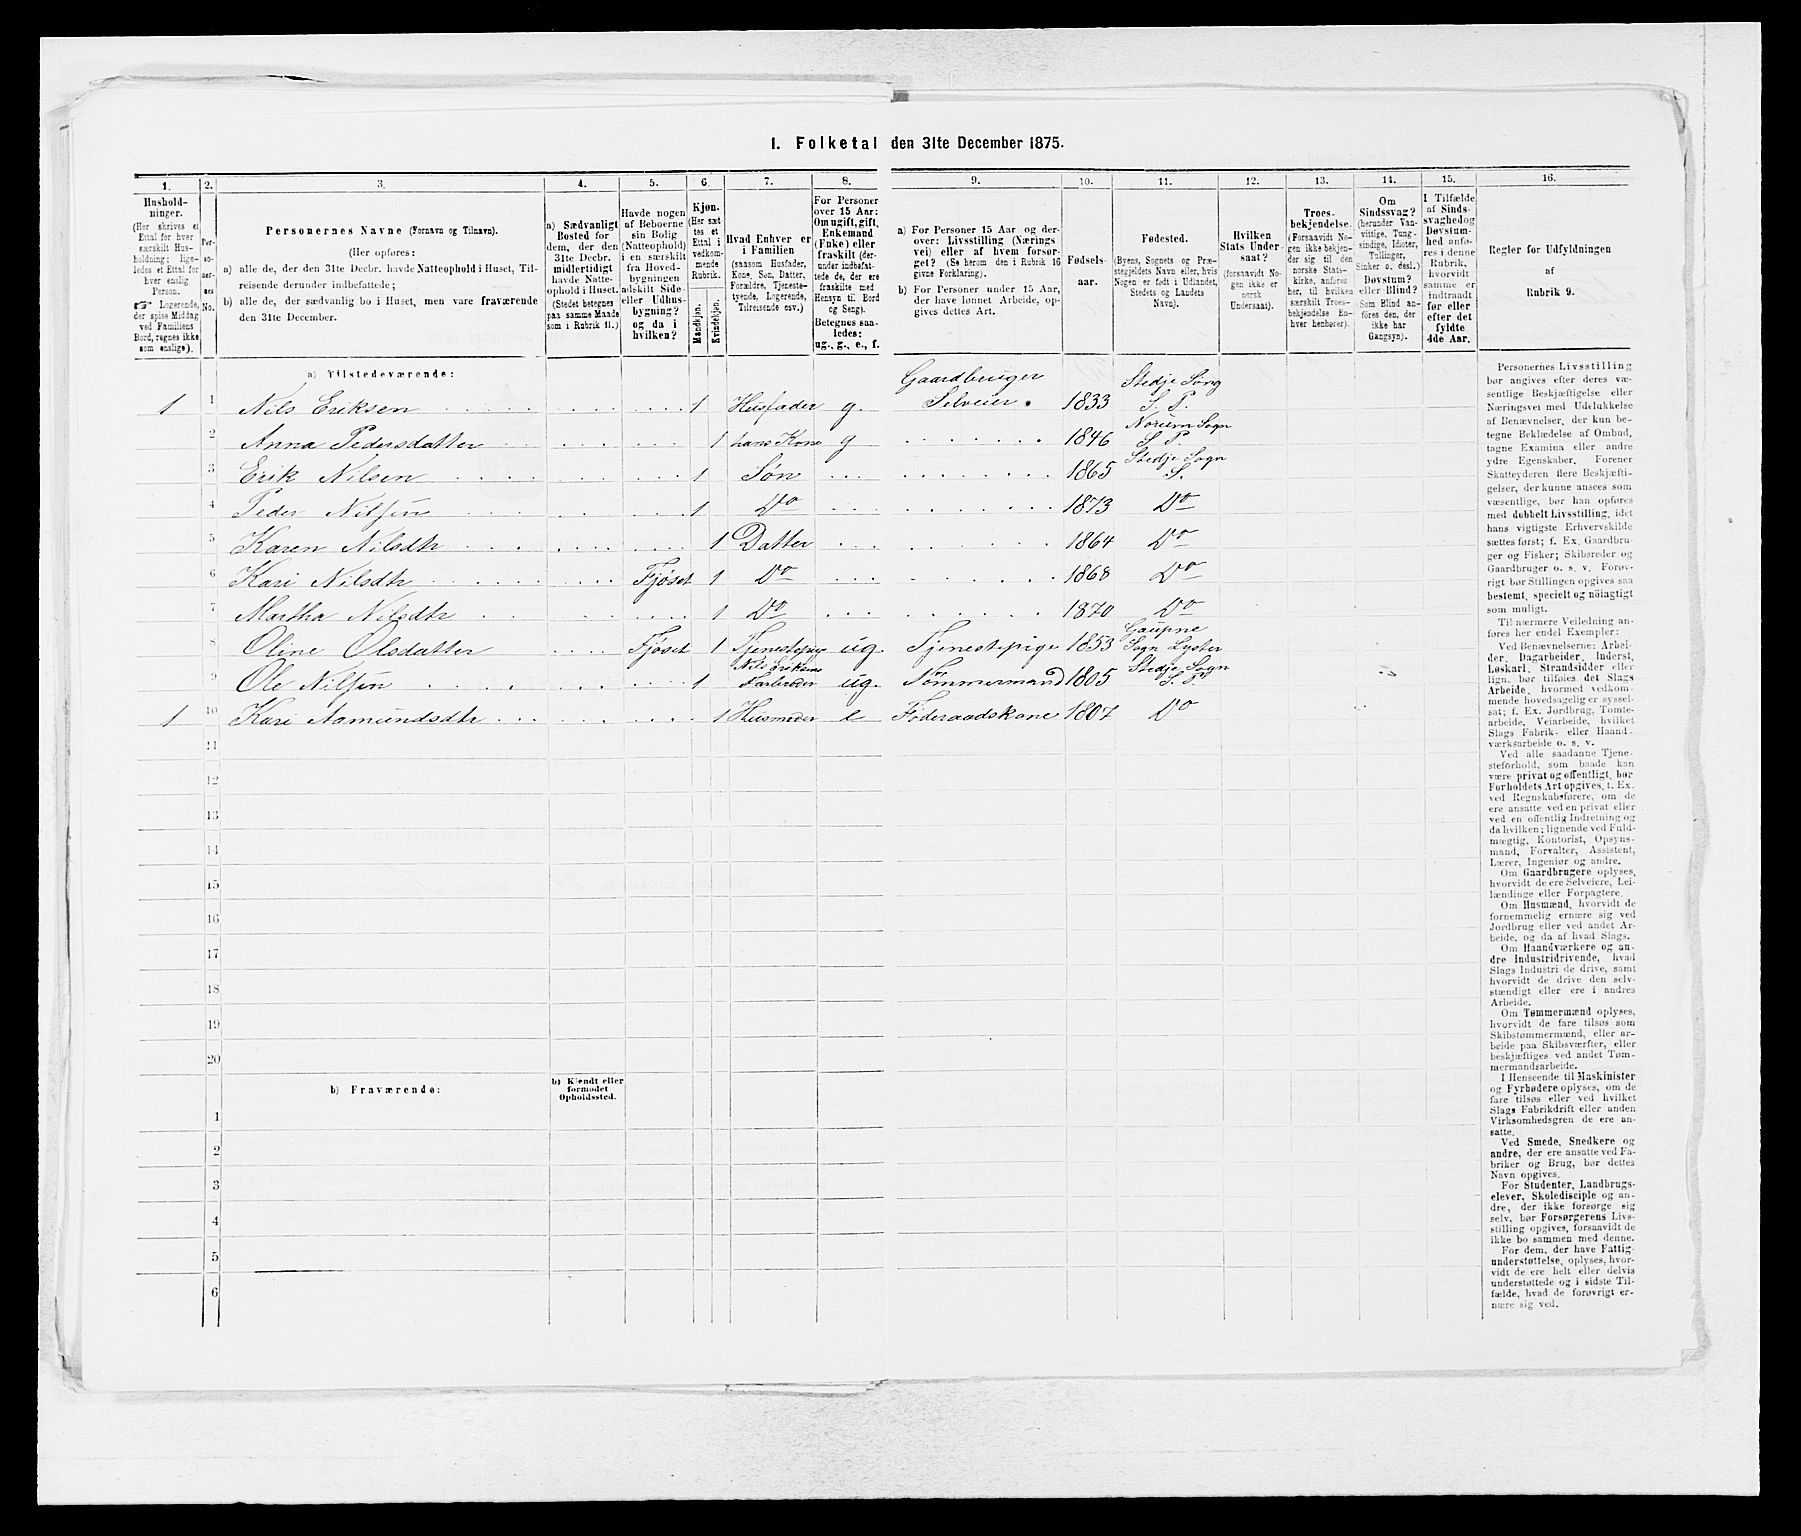 I. Folketal den 31te December 1875.
1. 2. 3. 4. 5. 6. 7. 8. 9. 10. 11. 12. 13. 14. 15. 16.
Hushold-
ninger.
(Her skrives et
Ettal for hver
særskilt Hus-
holdning; lige-
ledes et Ettal for
hver enslig
Person.
☞ Logerende,
der spise Middag
ved Familiens
Bord, regnes ikke
som enslige).
Per-
so-
ner-
nes
No.
Personernes Navne (Fornavn og Tilnavn).
(Her opføres:
a) alle de, der den 31te Decbr. havde Natteophold i Huset, Til-
reisende derunder indbefattede;
b) alle de, der sædvanlig bo i Huset, men vare fraværende
den 31te December.
a) Sædvanligt
Bosted for
dem, der den
31te Decbr.
midlertidigt
havde Natte-
ophold i Huset.
(Stedet betegnes
paa samme Maade
som i Rubrik 11.)
Havde nogen
af Beboerne
sin Bolig
(Natteophold)
i en særskilt
fra Hoved-
bygningen
adskilt Side-
eller Udhus-
bygning?
og da i
hvilken?
Kjøn.
(Her sæt-
tes et
Ettal i
vedkom-
mende
Rubrik.
Mandkjøn.
Kvindekjøn.
Hvad Enhver er
i Familien
(saasom Husfader,
Kone, Søn, Datter,
Forældre, Tjeneste-
tyende, Logerende,
Tilreisende osv.)
For Personer
over 15 Aar:
Om ugift, gift,
Enkemand
(Enke) eller
fraskilt (der-
under indbefat-
tede de, der ere
fraskilte med
Hensyn til Bord
og Seng).
Betegnes saa-
ledes:
ug., g., e., f.
a) For Personer 15 Aar og der-
over: Livsstilling (Nærings-
vei) eller af hvem forsør-
get? (Se herom den i Rubrik 16
givne Forklaring).
b) For Personer under 15 Aar,
der have lønnet Arbeide, op-
gives dettes Art.
Fødsels-
aar.
Fødested.
(Byens, Sognets og Præ-
stegjeldets Navn eller, hvis
Nogen er født i Udlandet,
Stedets og Landets
Navn).
Hvilken
Stats Under-
saat?
(forsaavidt No-
gen ikke er
norsk
Undersaat).
Troes-
bekjendelse.
(Forsaavidt No-
gen ikke bekjen-
der sig til den
norske Stats-
kirke, anføres
her, til hvilken
særskilt Troes-
bekjendelse En-
hver henhører).
Om
Sindssvag?
(herunder Van-
vittige, Tung-
sindige, Idioter,
Tullinger,
Sinker o. desl.)
Døvstum?
eller Blind?
(Som Blind an-
føres den, der
ikke har
Gangsyn).
I Tilfælde
af Sinds-
svaghed og
Døvstum-
hed anfø-
res i denne
Rubrik,
hvorvidt
samme er
indtraadt
før eller
efter det
fyldte
4de Aar.
Regler for Udfyldningen
af
Rubrik 9.
a) Tilstedeværende:
1 1 Nils Eriksen 1 Husfader g. Gaardbruger Selveier. 1833 Stedje Sogn S. P.
2 Anna Pedersdatter 1 hans Kone g 1846 Noriem Sogn S P
3 Erik Nilsen 1 Søn 1865 Stedje Sogn S.
4 Peder Nilsen 1 Do 1873 Do
5 Karen Nilsdtr 1 Datter 1864 Do
6 Kari Nilsdtr Fjøset 1 Do 1868 Do
7 Martha Nilsdtr 1 Do 1870 Do
8 Oline Olsdatter Fjøset 1 Tjenestepige ug. Tjenestepige 1853 Gaupne Sogn Lyster
9 Ole Nilsen 1 Nils Eriksens Farbroder ug. Tømmermand 1805 Stedje Sogn S. P.
1 10 Kari Aamundsdtr 1 Husmoder e Føderaadskone 1807 Do
11
12
13
14
15
16
17
18
19
20
b) Fraværende:
b) Kjendt eller
formodet
Opholdssted.
1
2
3
4
5
6
Personernes Livsstilling
bør angives efter deres væ-
sentlige Beskjæftigelse eller
Næringsvei med Udelukkelse
af Benævnelser, der kun be-
tegne Beklædelse af Ombud,
tagne Examina eller andre
ydre Egenskaber. Forener
Skatteyderen flere Beskjæfti-
gelser, der kunne ansees som
væsentlige, bør han opføres
med dobbelt Livsstilling, idet
hans vigtigste Erhvervskilde
sættes først; f. Ex. Gaardbru-
ger og Fisker; Skibsreder og
Gaardbruger o. s. v. Forøv-
rigt bør Stillingen opgives saa
bestemt, specielt og nøiagtigt
som muligt.
Til nærmere Veiledning an-
føres her endel Exempler:
Ved Benævnelserne: Arbei-
der, Dagarbeider, Inderst,
Løskarl, Strandsidder eller
lign. bør tilføies det Slags
Arbeide, hvormed vedkom-
mende hovedsagelig er syssel-
sat; f. Ex. Jordbrug, Tomte-
arbeide, Veiarbeide, hvilket
Slags Fabrik- eller Haand-
værksarbeide o. s. v.
Ved alle saadanne Tjene-
steforhold, som baade kan
være privat og offentligt, bør
Forholdets Art opgives, f. Ex.
ved Regnskabsførere, om de
ere ansatte ved en privat eller
ved en offentlig Indretning og
da hvilken; lignende ved Fuld-
mægtig, Kontorist, Opsyns-
mand, Forvalter, Assistent,
Lærer, Ingeniør og andre.
Om Gaardbrugere oplyses,
hvorvidt de ere Selveiere, Lei-
lændinge eller Forpagtere.
Om Husmænd, hvorvidt de
fornemmelig ernære sig ved
Jordbrug eller ved andet Ar-
beide, og da af hvad Slags.
Om Haandværkere og an-
dre Industridrivende, hvad
Slags Industri de drive, samt
hvorvidt de drive den selv-
stændigt eller ere i andres
Arbeide.
Om Tømmermænd oplyses,
hvorvidt de fare tilsøs som
Skibstømmermænd, eller ar-
beide paa Skibsværfter, eller
beskjæftiges ved andet Tøm-
mermandsarbeide.
I Henseende til Maskinister
og Fyrbødere oplyses, om de
fare tilsøs eller ved hvilket
Slags Fabrikdrift eller anden
Virksomhedsgren de ere an-
satte.
Ved Smede, Snedkere og
andre, der ere ansatte ved Fa-
briker og Brug, bør dettes
Navn opgives.
For Studenter, Landbrugs-
elever, Skoledisciple og an-
dre, der ikke forsørge sig
selv, bør Forsørgerens Livs-
stilling opgives, forsaavidt de
ikke bo sammen med denne.
For dem, der have Fattig-
understøttelse, oplyses, hvor-
vidt de ere helt eller delvis
understøttede og i sidste Til-
fælde, hvad de forøvrigt er-
nære sig ved.